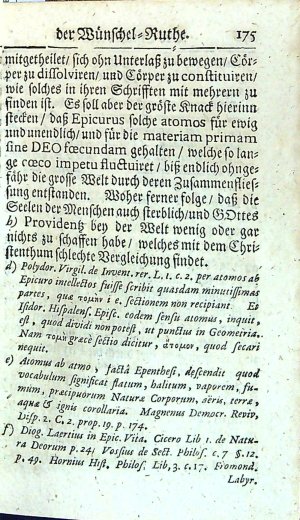 der Wünschel-Ruthe. 175
mitgetheilet/ sich ohn Unterlaß zu bewegen/ Cör-
per zu dissolviren/ und Cörper zu constituiren/
wie solches in ihren Schrifften mit mehrern zu
finden ist. Es soll aber der gröste Knack hierinn
stecken/ daß Epicurus solche atomos für ewig
und unendlich/ und für die materiam primam
sine DEO fœcundam gehalten/ welche so lan-
ge cœco impetu fluctuiret/ biß endlich ohnge-
fähr die grosse Welt durch deren Zusammenflies-
sung entstanden. Woher ferner folge/ daß die
Seelen der Menschen auch sterblich/ und GOttes
h) Providentz bey der Welt wenig oder gar
nichts zu schaffen habe/ welches mit dem Chri-
stenthum schlechte Vergleichung findet.
d) Polydor. Virgil. de Invent. rer. L. 1. c. 2. per atomos ab
Epicuro intellectos fuisse scribit quasdam minutissimas
partes, qua τομὴν i e. sectionem non recipiant. Et
Isidor. Hispalens. Episc. eodem sensu atomus, inquit,
est, quod dividi non potest, ut punctus in Geometria.
Nam τομὴ græcè sectio dicitur, ἄτομον, quod secari
nequit.
e) Atomus ab atmo, factâ Epenthesi, descendit quod
vocabulum significat flatum, halitum, vaporem, fu-
mum, præcipuorum Naturæ Corporum, aëris, terræ,
aquæ & ignis corollaria. Magnenus Democr. Reviv,
Disp. 2. C. 2. prop. 19. p. 174.
f) Diog. Laertius in Epic. Vita. Cicero Lib 1. de Natu-
ra Deorum p. 24. Vossius de Sect. Philos. c. 7 §. 12.
p. 49. Hornius Hist. Philos. Lib, 3. c. 17. Fromond.
Labyr.